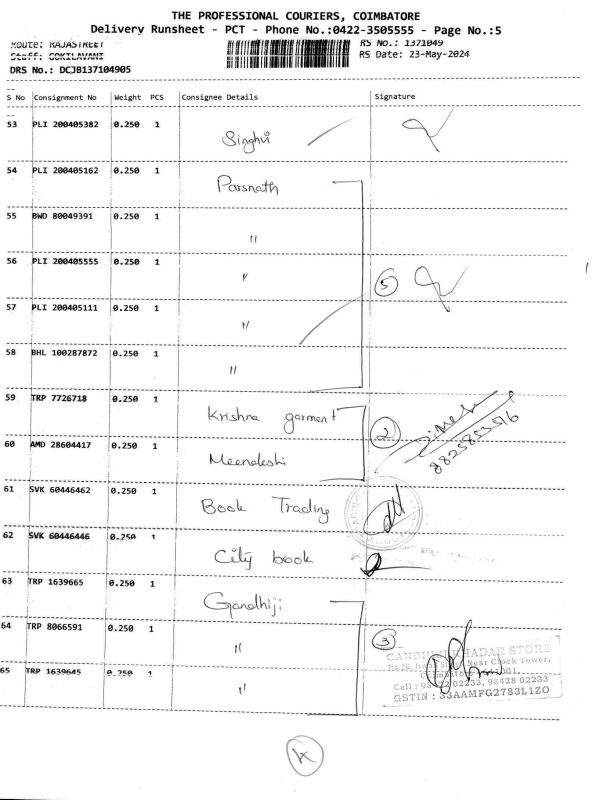 THE PROFESSIONAL COURIERS, COIMBATORE
Delivery Runsheet - PCT - Phone No.:0422-3505555 - Page No.:5
Route: RAJASTREET
RS No.: 1371049
Staff: GOKILAVANI
RS Date: 23-May-2024
DRS No.: DCJB137104905
S No Consignment No Weight PCS Consignee Details Signature
53 PLI 200405382 0.250 1 Singhvi
54 PLI 200405162 0.250 1 Parsnath
55 BWD 80049391 0.250 1 "
56 PLI 200405555 0.250 1 " 5
57 PLI 200405111 0.250 1 "
58 BHL 100287872 0.250 1 "
59 TRP 7726718 0.250 1 Krishna garment 2
8825853516
60 AMD 28604417 0.250 1 Meenakshi
61 SVK 60446462 0.250 1 Book Trading
62 SVK 60446446 0.250 1 City book
63 TRP 1639665 0.250 1 Gandhiji
64 TRP 8066591 0.250 1 " 3
KHADAR STORE
Near Clock Tower,
65 TRP 1639645 0.250 1 "
02233, 98428 02233
GSTIN : 33AAMFG2783L1ZO